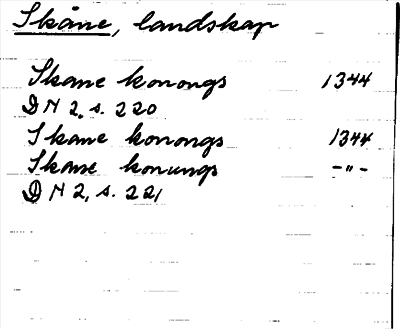 Skåne, landskap
Skane konongs 1344
DN 2, s. 220
Skane konongs 1344
Skane konungs -"-
DN 2, s. 221